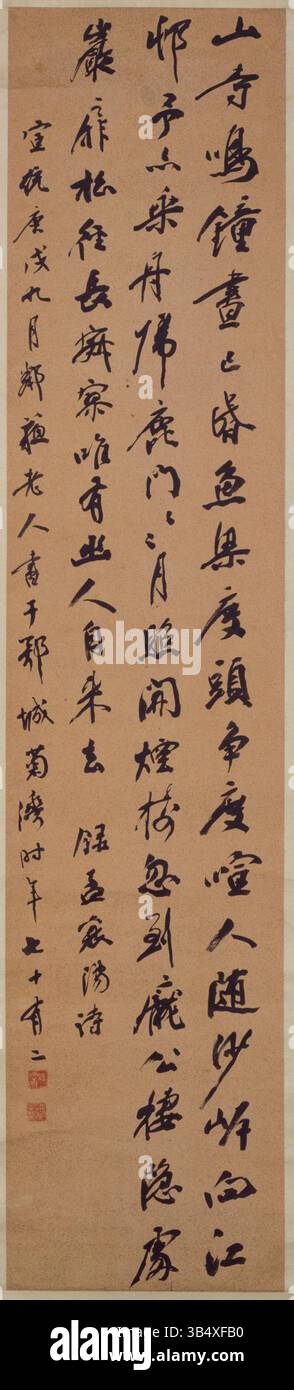 山寺鳴鐘晝已昏魚梁度頭爭度喧人随沙岍向江
邨予亦乘舟歸鹿門〻〻月照開煙樹忽到龐公棲隱處
巖扉松徑長寂寥唯有幽人自来去 錄孟襄陽詩
宣統庚戌九月鄰蘇老人書于鄂城菊灣時年七十有二
alamy
Image ID: 3B4XFB0
www.alamy.com